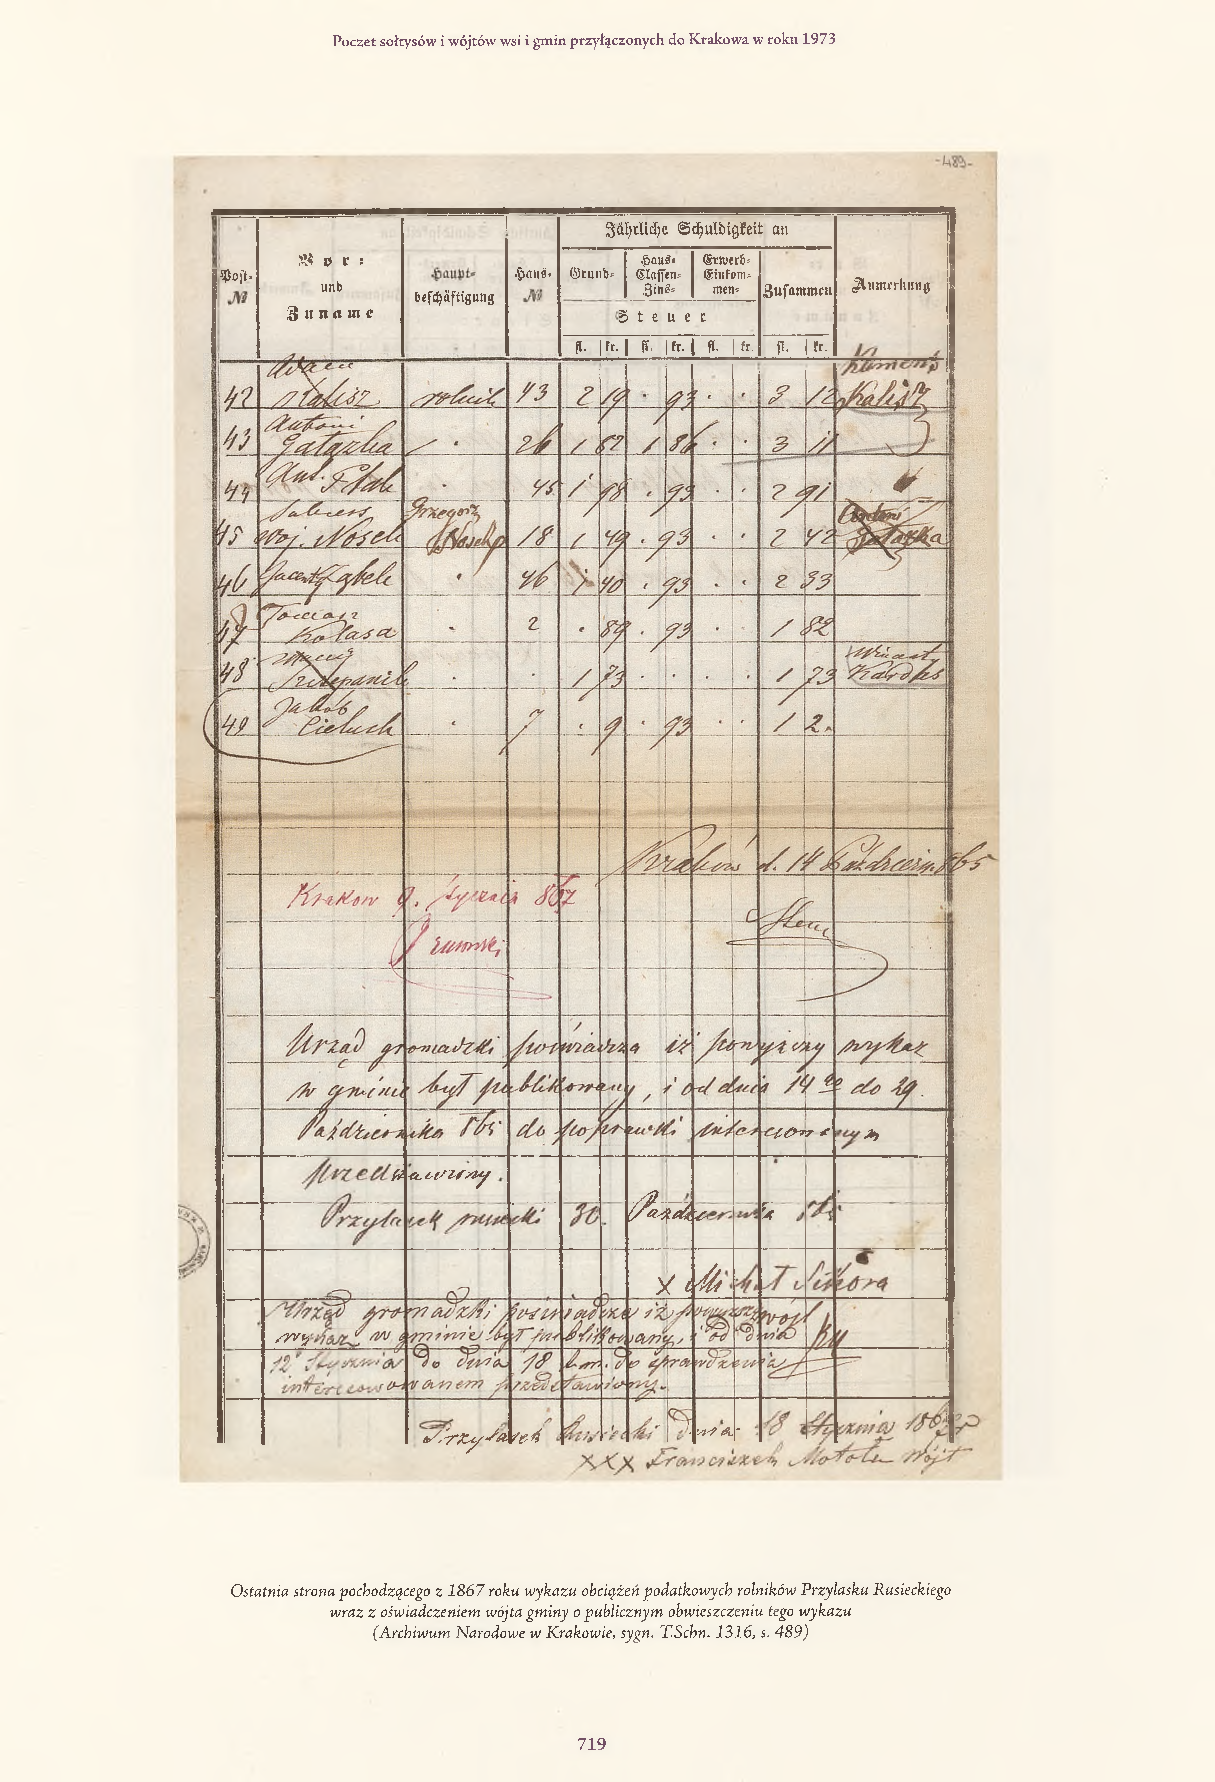 Poczet sołtysów i wójtów wsi i gmin przyłączonych do Krakowa w roku 1973
-489-
Jährliche Schuldigkeit an
Post-
№
Vor-
und
Zuname
Haupt-
beschäftigung
Haus-
№
Grund-
Haus-
Classen-
Zins-
Erwerb-
Einkom-
men-
Steuer
Zusammen
Anmerkung
fl. kr. fl. kr. fl. kr. fl. kr.
42 Kalisz rolnik 43 2 19 . 93 . . 3 12 Kalisz
Antoni
43 Gałązka 26 1 87 1 86 . . 3 11
44 Ant. Ptak . 45 1 98 . 93 . . 2 91
Grzegorz
45 Woj. Nosek Nosek 18 1 49 . 93 . . 2 42 Gałązka
46 Jacenty . 46 1 40 . 93 . . 2 33
Tomasz
47 Kolasa . 2 . 89 . 93 . . 1 82
48 Szczepanik . . 1 73 . . . . 1 73 Kardas
Jakób
49 Cieluch . 7 . 9 . 93 . . 1 2.
Kraków d. 14 Październ. 865
Krakow 9. stycznia 867
Urząd gromadzki poświadcza iż powyższy wykaz
w gminie był publikowany, i od dnia 14go do 29.
Października 865 do poprawki interesowanym
przedstawiony.
Przylasek rusiecki 30. Października 865
x Michał Sikora
wójt
Urząd gromadzki poświadcza iż powyższy
wykaz w gminie był publikowany, i od dnia
12 Stycznia do dnia 18 b.m. do sprawdzenia
interesowowanem przedstawiony.
Przylasek Rusiecki dnia 18 Stycznia 1867 r
XXX Franciszek Motoła wójt
Ostatnia strona pochodzącego z 1867 roku wykazu obciążeń podatkowych rolników Przylasku Rusieckiego
wraz z oświadczeniem wójta gminy o publicznym obwieszczeniu tego wykazu
(Archiwum Narodowe w Krakowie, sygn. T.Schn. 1316, s. 489)
719